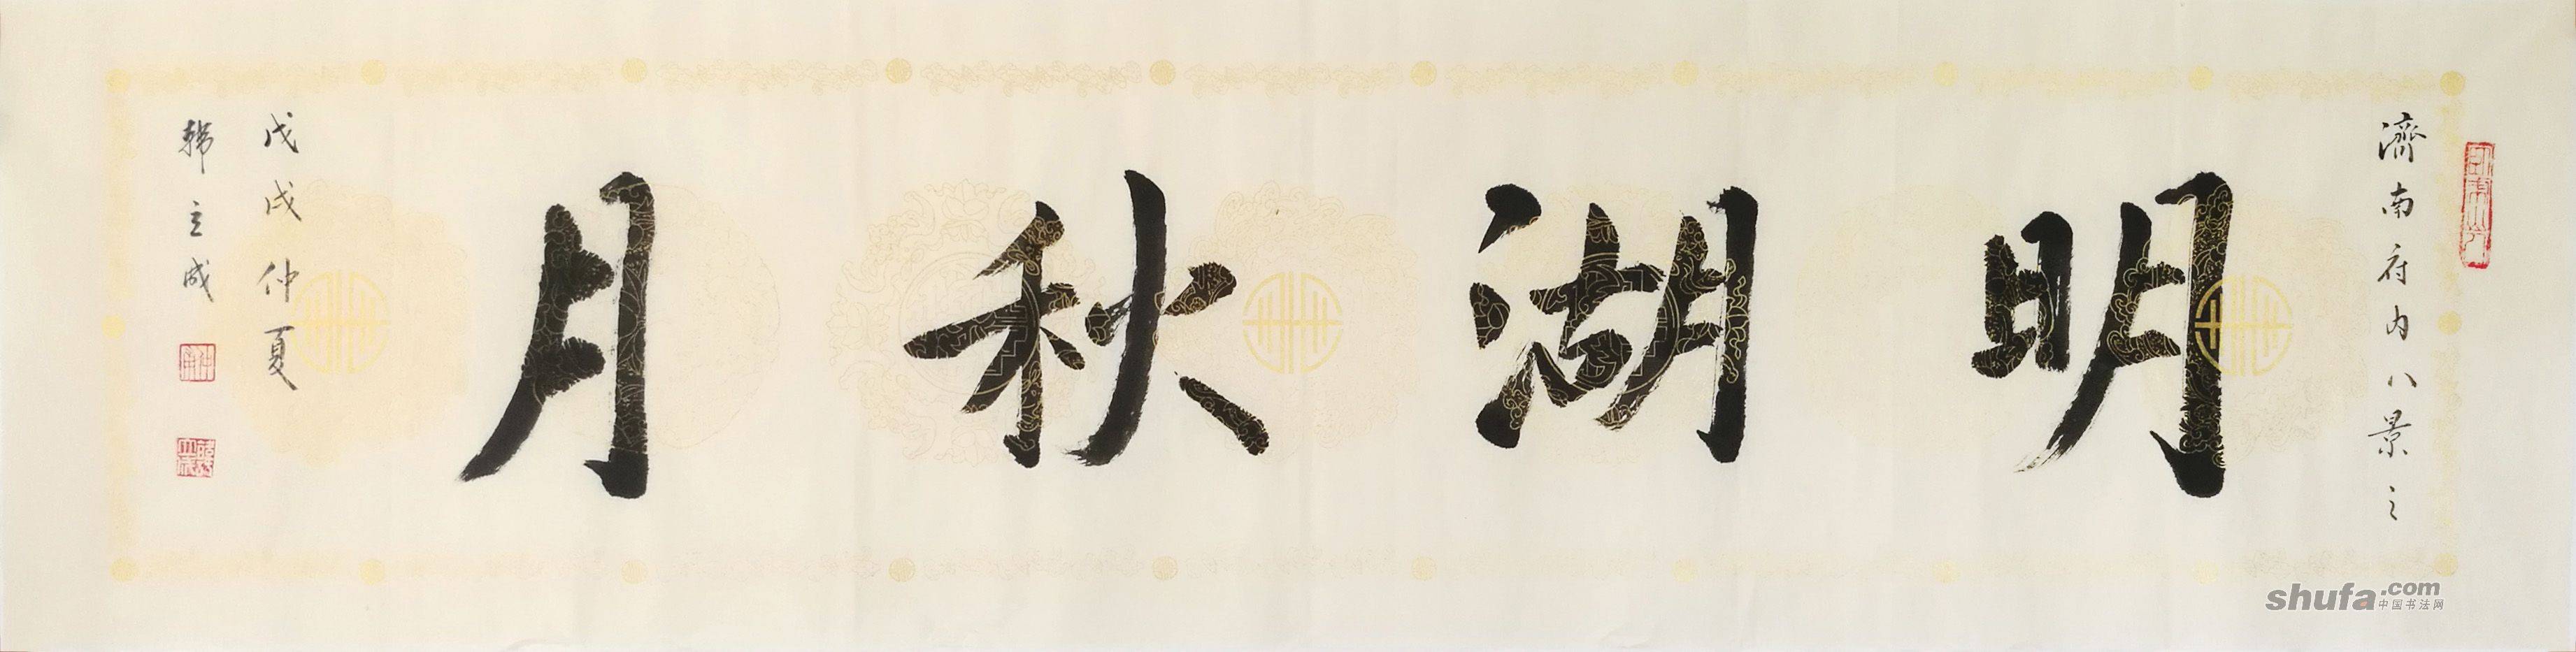 濟南府內八景之
明湖秋月
戊戌仲夏
韩立成
shufa.com
中国书法网